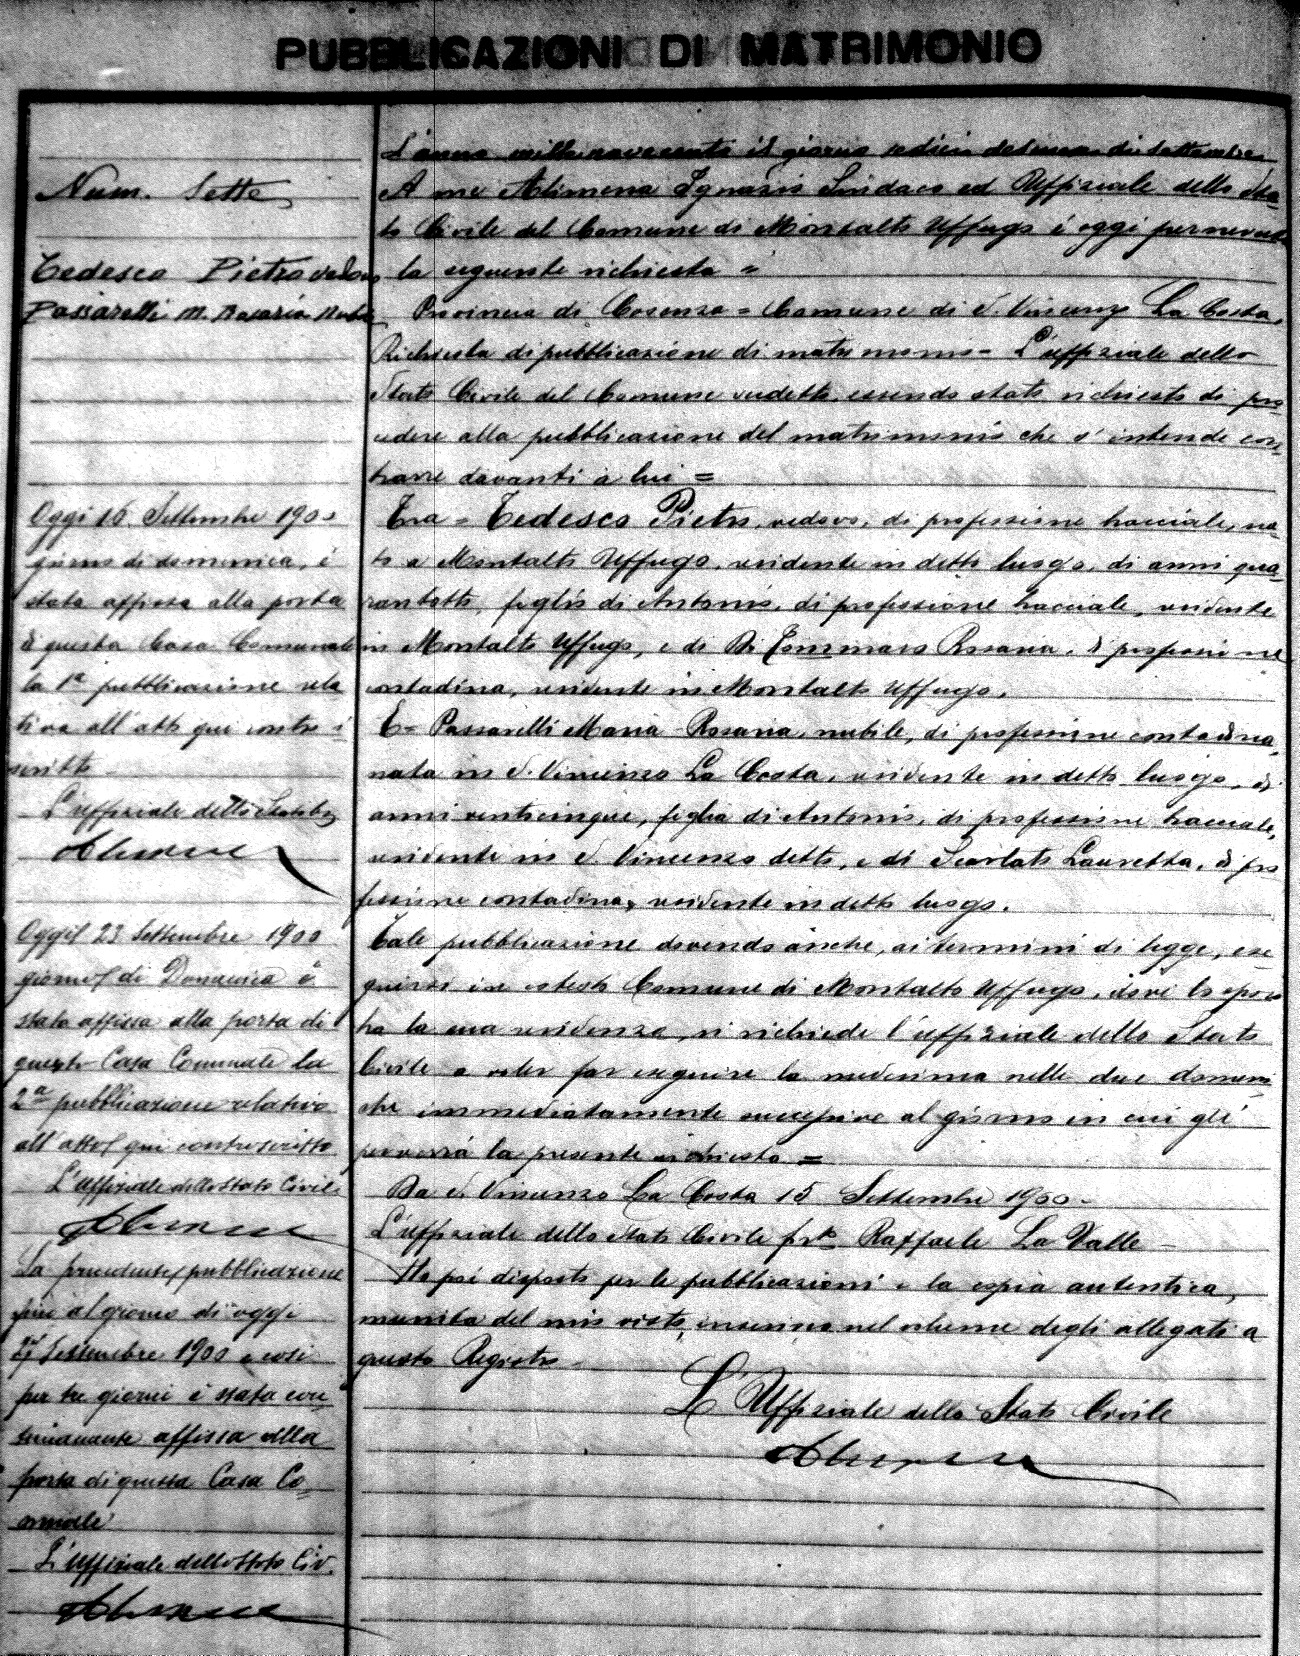 PUBBLICAZIONI DI MATRIMONIO
Num. Sette
Tedesco Pietro vedovo
Passarelli M. Rosaria Nubile
Oggi 16 Settembre 1900
giorno di domenica, è
stata affissa alla porta
di questa Casa Comunale
la 1ª pubblicazione rela
tiva all'atto qui contro i
scritto
L'uffiziale dello Stato
Alimena
Oggi 23 Settembre 1900
giorno di Domenica è
stata affissa alla porta di
questa Casa Comunale la
2ª pubblicazione relativa
all'atto qui controscritto
L'uffiziale dello Stato Civile
Alimena
La precedente pubblicazione
fino al giorno di oggi
27 Settembre 1900 e così
per tre giorni è stata con
tinuamente affissa alla
porta di questa Casa Co
munale
L'uffiziale dello Stato Civ.
Alimena
L'anno millenovecento il giorno sedici del mese di Settembre
A me Alimena Ignazio Sindaco ed Uffiziale dello Sta
to Civile del Comune di Montalto Uffugo è oggi pervenuta
la seguente richiesta =
Provincia di Cosenza = Comune di S. Vincenzo La Costa,
Richiesta di pubblicazione di matrimonio - L'uffiziale dello
Stato Civile del Comune sudetto, essendo stato richiesto di pro
cedere alla pubblicazione del matrimonio che s'intende con
trarre davanti a lui =
Tra = Tedesco Pietro, vedovo, di professione bracciale, na
to a Montalto Uffugo, residente in detto luogo, di anni qua
rantotto, figlio di Antonio, di professione bracciale, residente
in Montalto Uffugo, e di Di Tommaso Rosaria, di professione
contadina, residente in Montalto Uffugo.
E = Passarelli Maria Rosaria, nubile, di professione contadina,
nata in S. Vincenzo La Costa, residente in detto luogo, di
anni venticinque, figlia di Antonio, di professione bracciale,
residente in S. Vincenzo detto, e di Scarlato Lauretta, di pro
fessione contadina, residente in detto luogo.
Tale pubblicazione dovendo anche, ai termini di legge, ese
guirsi in cotesto Comune di Montalto Uffugo, dove lo sposo
ha la sua residenza, si richiede l'uffiziale dello Stato
Civile a voler far eseguire la medesima nelle due domeni
che immediatamente successive al giorno in cui gli
perverrà la presente richiesta =
Da S. Vincenzo La Costa 15 Settembre 1900 -
L'uffiziale dello Stato Civile fto Raffaele La Valle -
Ho poi disposto per le pubblicazioni e la copia autentica,
munita del mio visto, inserisco nel volume degli allegati a
questo Registro
L'Uffiziale dello Stato Civile
Alimena